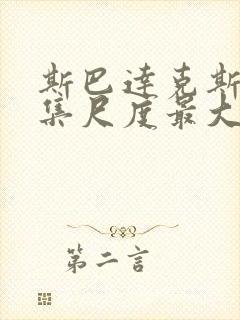 斯巴达克斯
集尺度最大
第二言